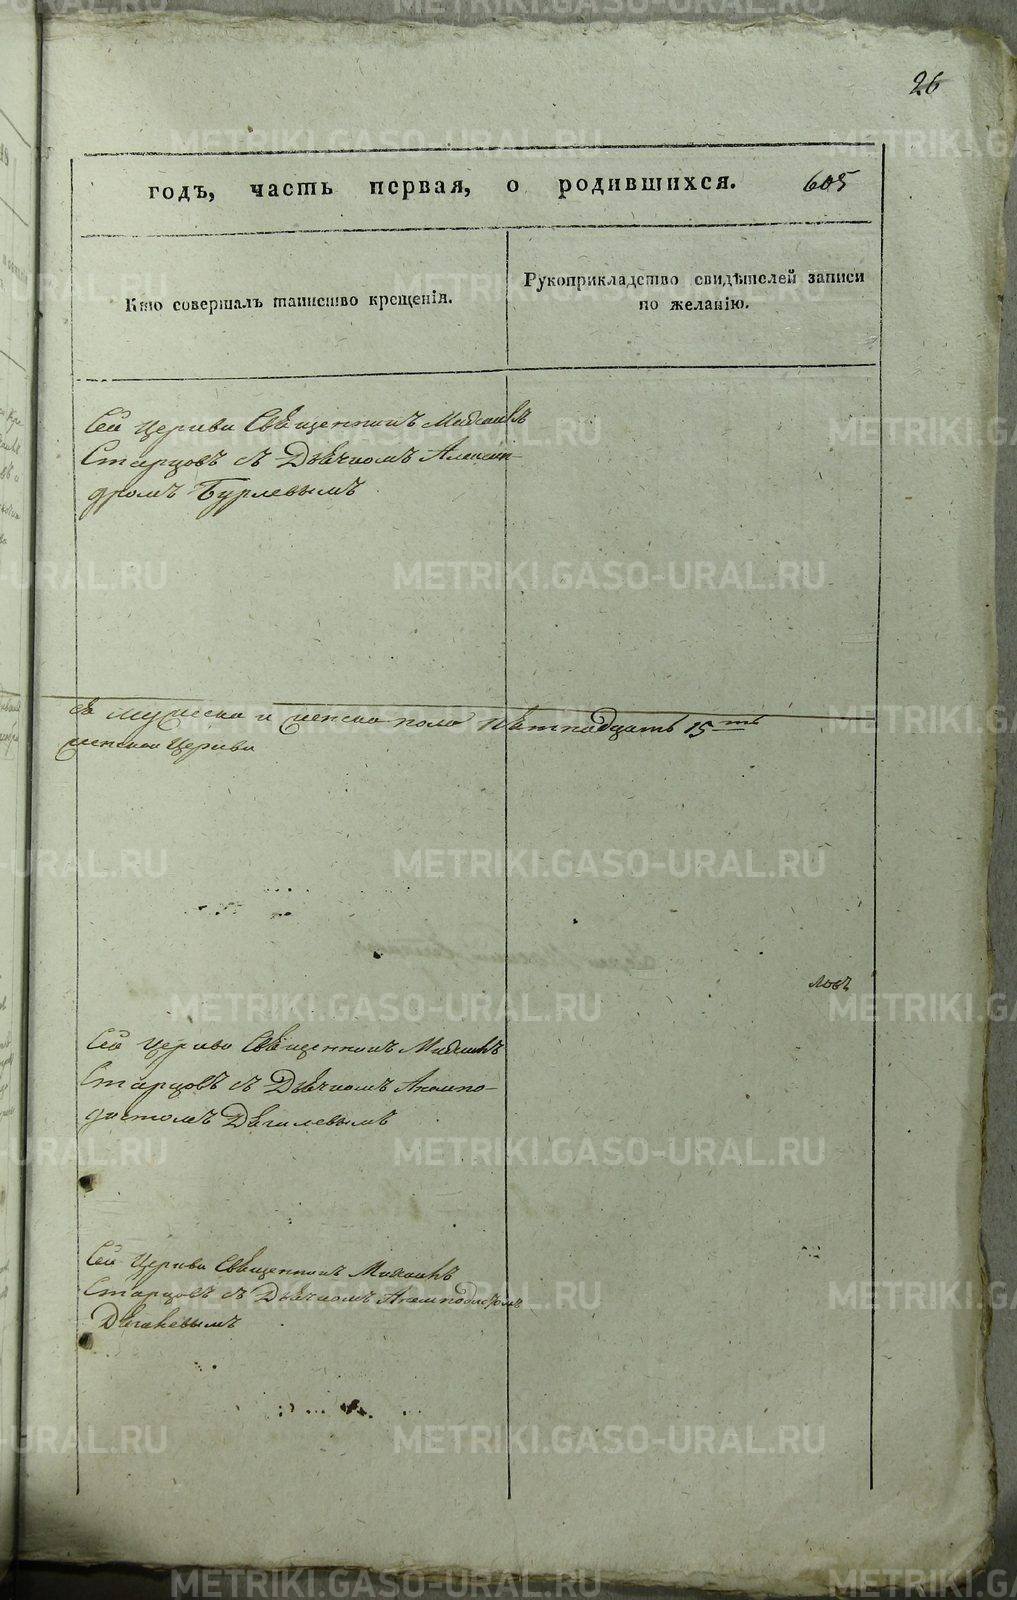 26
годъ, часть первая, о родившихся. 605
Кто совершалъ таинство крещенія.
Рукоприкладство свидѣтелей записи
по желанію.
Сей Церкви Священникъ Михаилъ
Старцовъ съ Дьячкомъ Алексан-
дромъ Бурлевымъ
мужеска и женска пола пятнадцать 15ть
Церкви
ловъ
Сей Церкви Священникъ Михаилъ
Старцовъ съ Дьячкомъ Акепо-
Дягилевымъ
Сей Церкви Священникъ Михаилъ
Старцовъ съ Дьячкомъ
METRIKI.GASO-URAL.RU